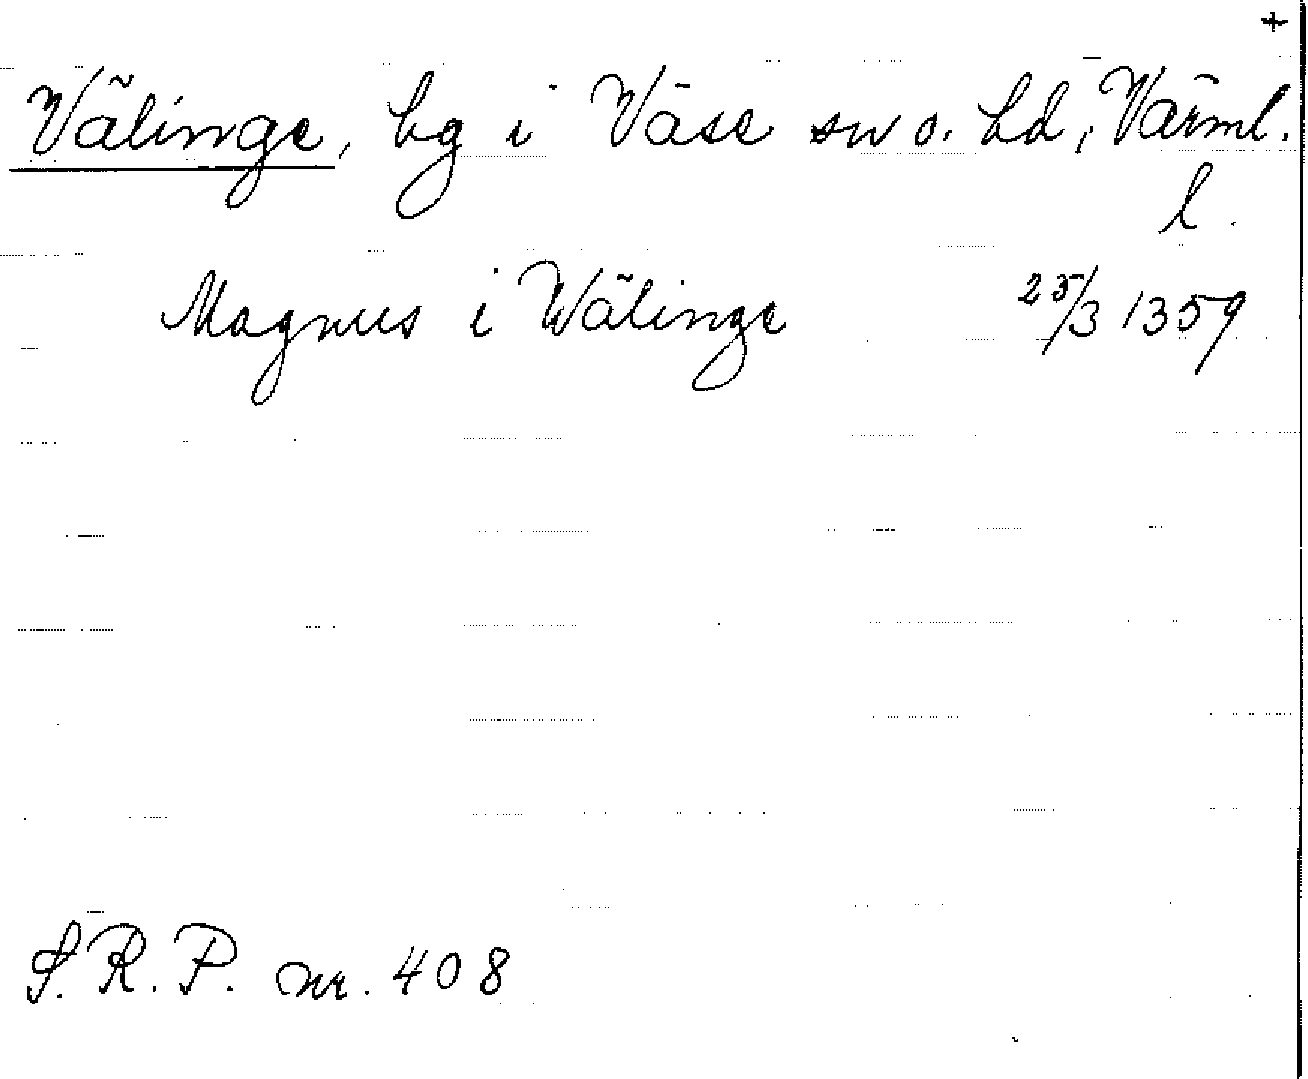 +
Välinge, by i Väse sn o. hd, Värml.
l.
Magnus i Wälinge 25/3 1359
S.R.P. nr. 408